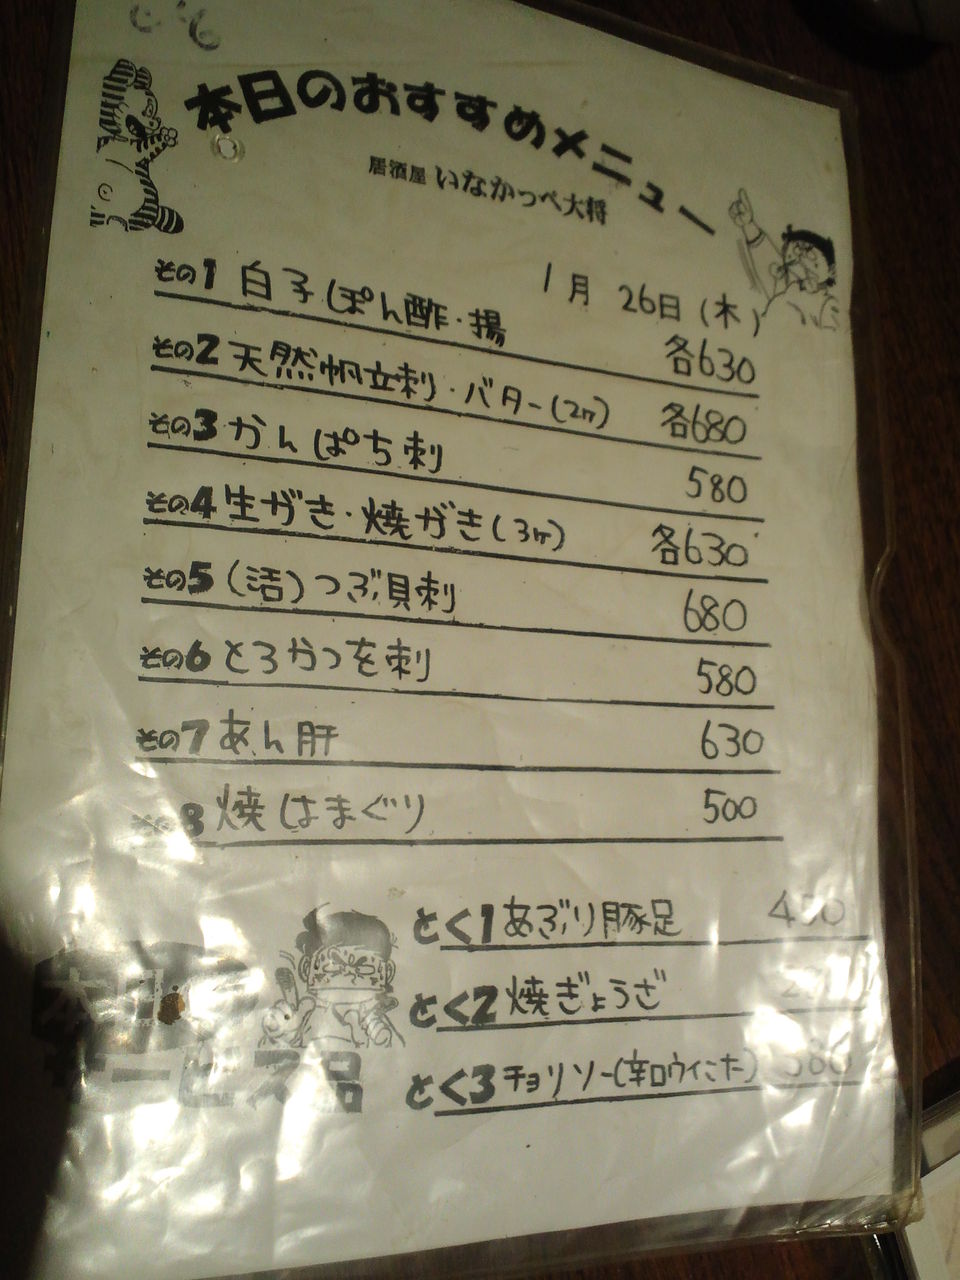 本日のおすすめメニュー
居酒屋 いなかっぺ大将
1月 26日(木)
その1 白子ぽん酢・揚 各630
その2 天然帆立刺・バター(2ヶ) 各680
その3 かんぱち刺 580
その4 生がき・焼がき(3ヶ) 各630
その5 (活)つぶ貝刺 680
その6 とろかつを刺 580
その7 あん肝 630
その8 焼はまぐり 500
とく1 あぶり豚足
とく2 焼ぎょうざ
とく3 チョリソー(辛口ウィンナー)
サービス品